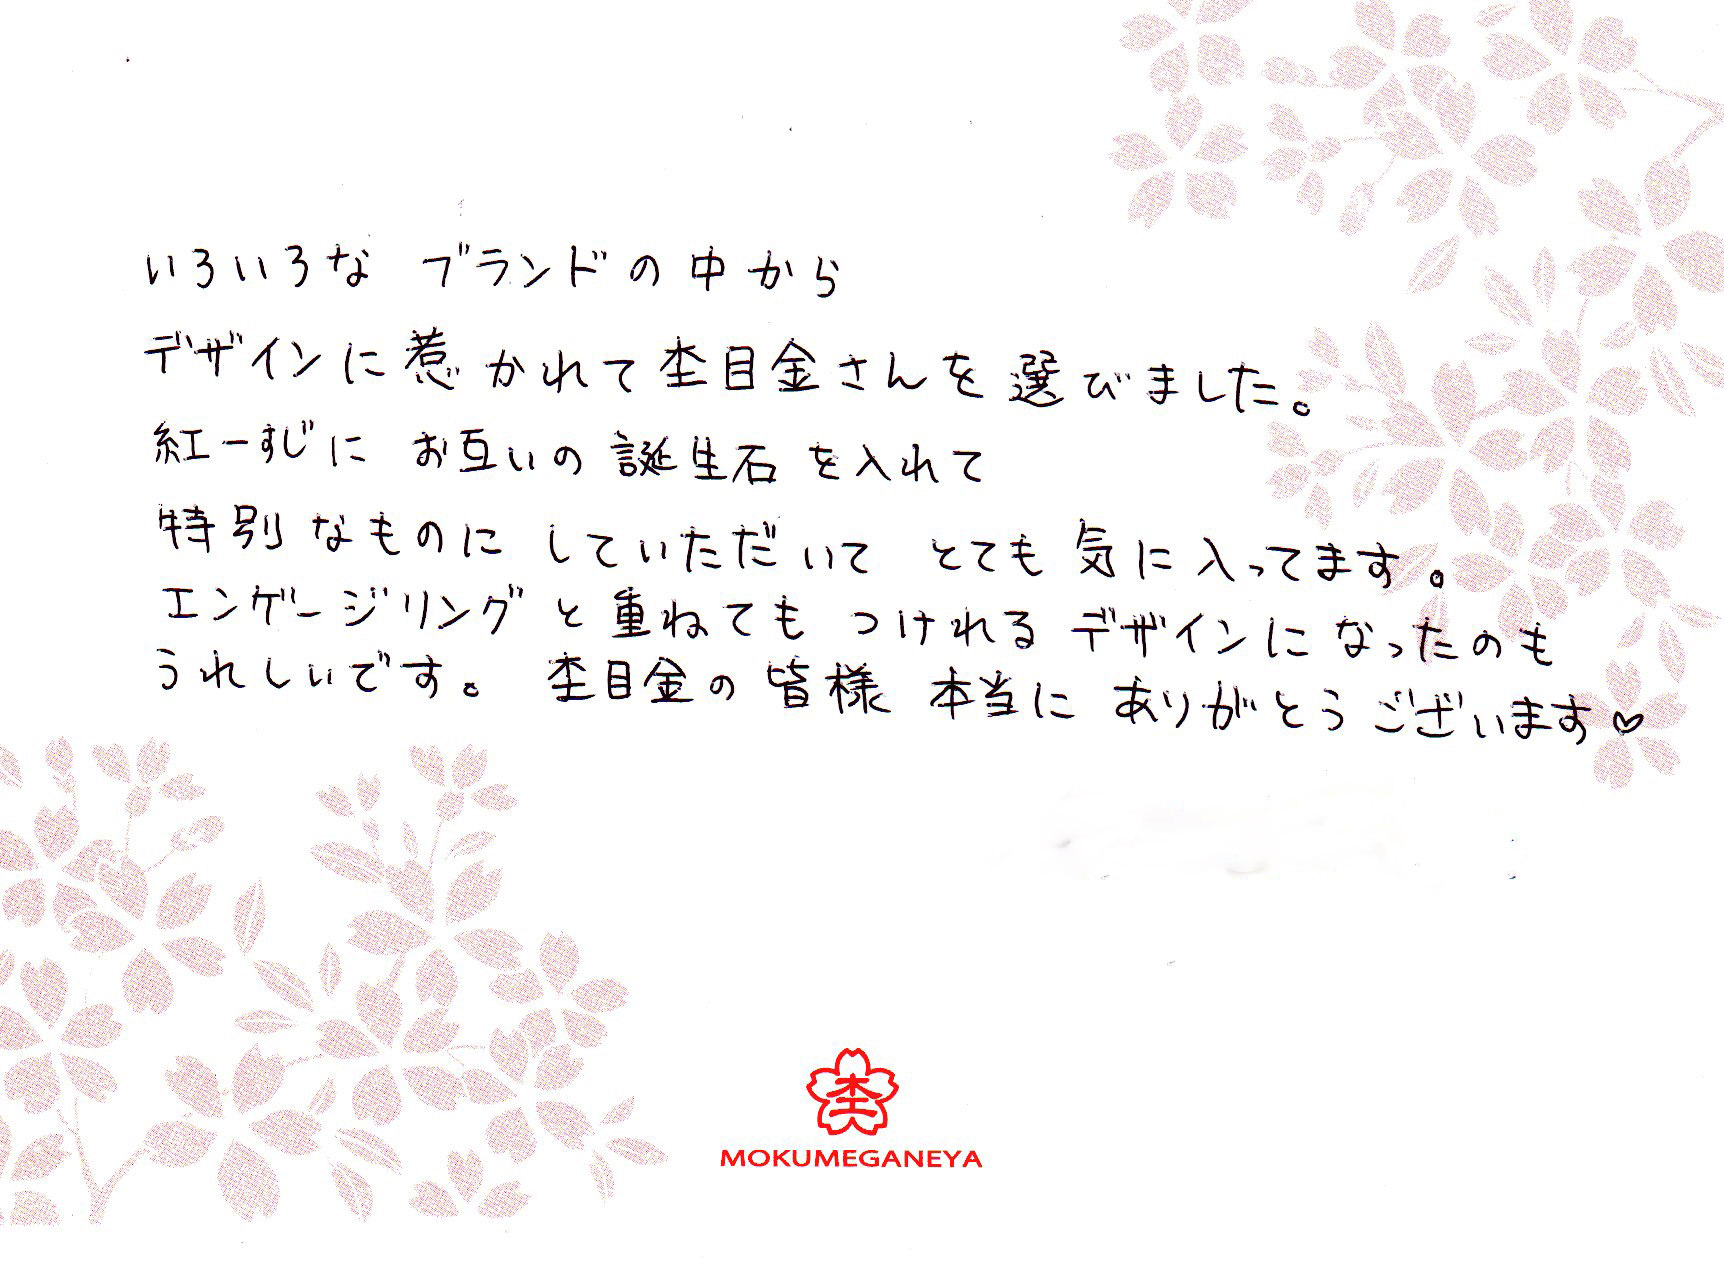 いろいろな ブランドの中から
デザインに惹かれて杢目金さんを選びました。
紅一すじに お互いの誕生石を入れて
特別なものに していただいて とても気に入ってます。
エンゲージリングと重ねても つけれるデザインになったのも
うれしいです。 杢目金の皆様 本当に ありがとうございます♡
杢
MOKUMEGANEYA